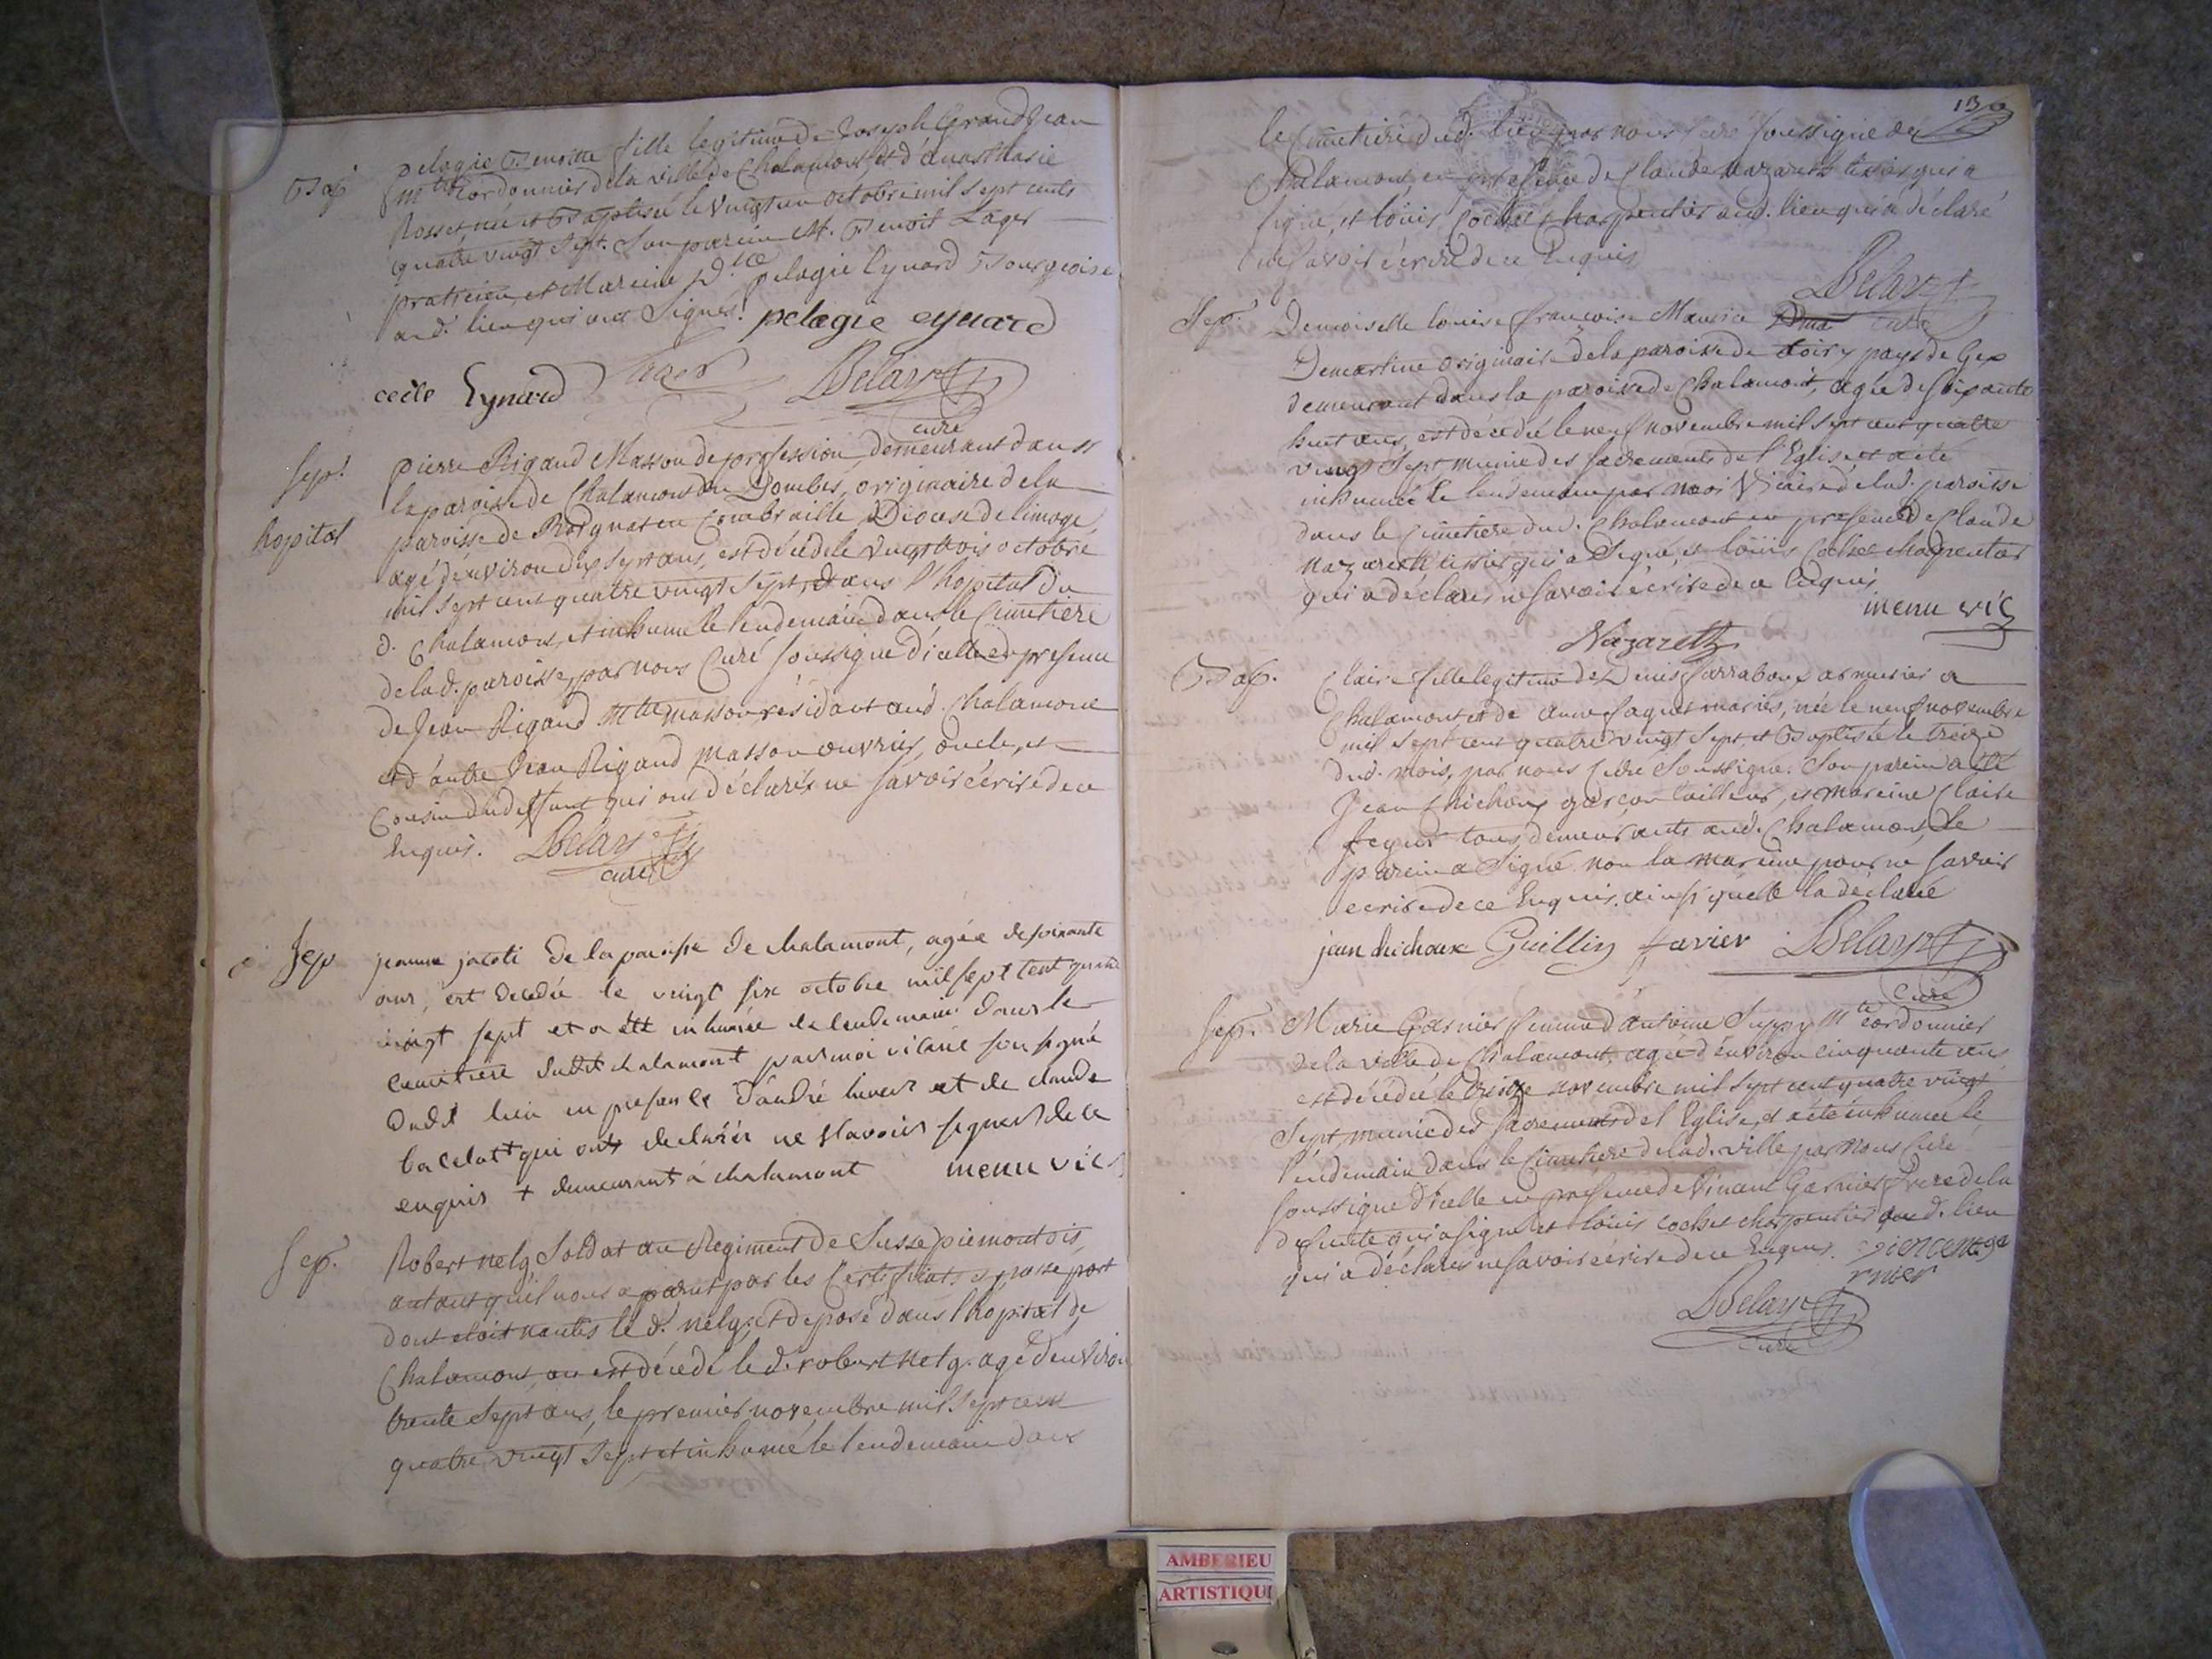 Bap.
pelagie Benoitte fille legitime de Joseph Grandjean
mtre Cordonnier de la ville de Chalamont, et d'anasthasie
Rosset, née et Baptisée le vingt un octobre mil sept cents
quatre vingt sept. Son parein Mr. Benoit Lager
praticien, et Mareine Dlle pelagie Eynard Bourgeoise
aud. lieu qui ont signes. pelagie eynard
cecile Eynard Lager Delarye
curé
sep.
hopital
pierre Rigaud Masson de profession, demeurant dans
la paroisse de Chalamont en Dombes, originaire de la
paroisse de en Combraille Diocese de limoge,
agé d'environ dix sept ans, est décédé le vingt trois octobre
mil sept cent quatre vingt sept, dans l'hopital du
d. Chalamont, et inhumé le lendemain dans le Cimetiere
de lad. paroisse, par nous Curé soussigné d'icelle en presence
de Jean Rigaud mtre masson résidant aud. Chalamont
et d'autre Jean Rigaud masson ouvrier, oncle, et
Cousin dud. deffunt qui ont déclarés ne savoir écrire de ce
Enquis. Delarye
curé
sep
jeanne jacoti de la paroisse de chalamont, agée de soixante
ans, est decedée le vingt six octobre mil sept cent quatre
vingt sept et a été inhumée le lendemain dans le
cimetiere dudit chalamont par moi vicaire soussigné
dudit lieu en presence d'andré et de claude
+ qui ont declarés ne scavoir signer de ce
enquis + demeurant à chalamont menu vic
Sep.
Robert nelg Soldat au Regiment de Susse piemontois,
autant quil nous a parut par les Certificats et passe port
dont etoit nantis le d. nelg, et deposé dans l'hopital de
Chalamont, ou est décédé le d. robert nelg. agé d'environ
trente sept ans, le premier novembre mil sept cent
quatre vingt sept et inhumé le lendemain dans
130
le Cimetiére dud. lieu par nous Curé soussigné de
Chalamont, en presence de Claude Nazareth tissier qui a
signé, et loüis Cochet Charpentier aud. lieu qui a déclaré
ne savoir écrire de ce Enquis
Delarye
curé
Sep.
Demoiselle louise françoise Maurice
Demartine originaire de la paroisse de toiry pays de Gex
demeurant dans la paroisse de Chalamont, agée de soixante
huit ans, est décedée le neuf novembre mil sept cent quatre
vingt sept munie des sacrements de l'Eglise, et a été
inhumée le lendemain par moi Vicaire de lad. paroisse
dans le Cimetiere dud. Chalamont en presence de Claude
Nazareth tissier qui a signé, et loüis Cochet charpentier
qui a déclaré ne savoir écrire de ce Enquis
menu vic
Nazareth
Bap.
Claire fille legitime de Denis armurier a
Chalamont, et de anne mariés, née le neuf novembre
mil sept cent quatre vingt sept, et Baptisée le treize
dud. mois, par nous Curé soussigné. Son parein a été
Jean Chichoux garçon tailleur, et mareine Claire
tous demeurants aud. Chalamont, Le
parein a signé non la mareine pour ne savoir
ecrire de ce Enquis. ainsi quelle la déclaré
jean chichoux Guillin favier Delarye
Curé
Sep.
Marie Garnier femme d'antoine mtre cordonnier
de la ville de Chalamont, agée d'environ cinquante ans
est décédée le treize novembre mil sept cent quatre vingt
sept, munie des sacrements de l'Eglise, et a été inhumée le
lendemain dans le Cimetiere de lad. ville par nous Curé
soussigné d'icelle en presence de Vincent Garnier frere de la
defunte qui a signé et loüis cochet charpentier aud. lieu
qui a déclaré ne savoir écrire de ce Enquis. viencent ga
rnier
Delarye
Curé
AMBERIEU
ARTISTIQU